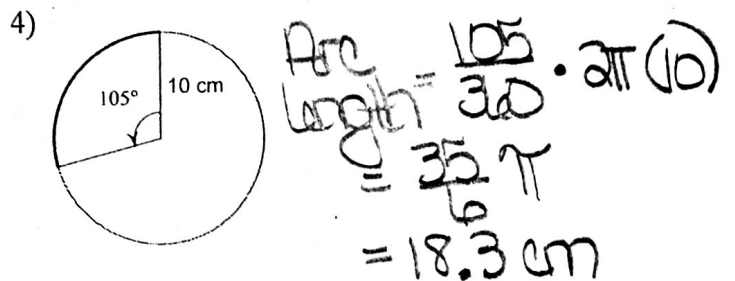 4)
105°
10 cm
Arc
Length = 105/360 · 2π(10)
= 35/6 π
= 18.3 cm